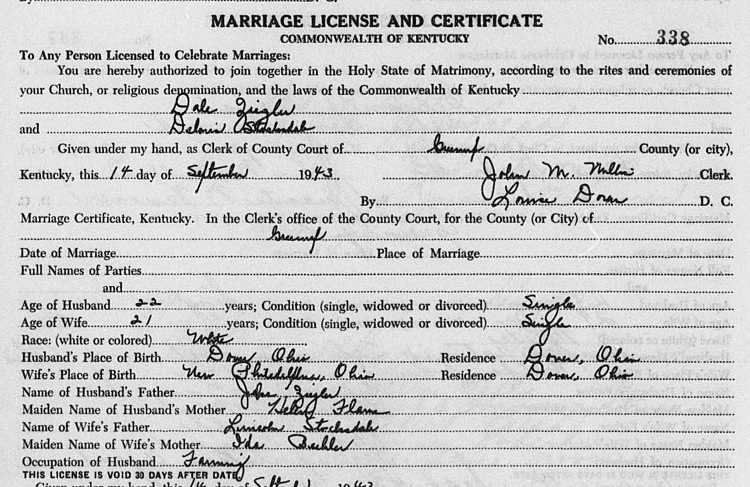 MARRIAGE LICENSE AND CERTIFICATE
COMMONWEALTH OF KENTUCKY
No. 338
To Any Person Licensed to Celebrate Marriages:
You are hereby authorized to join together in the Holy State of Matrimony, according to the rites and ceremonies of
your Church, or religious denomination, and the laws of the Commonwealth of Kentucky
Dale Zeigler
and Deloris Stocksdale
Given under my hand, as Clerk of County Court of Greenup County (or city),
Kentucky, this 14 day of September 1943. John M. Clerk.
By Louise D. C.
Marriage Certificate, Kentucky. In the Clerk's office of the County Court, for the County (or City) of
Greenup
Date of Marriage Place of Marriage
Full Names of Parties
and
Age of Husband 22 years; Condition (single, widowed or divorced) Single
Age of Wife 21 years; Condition (single, widowed or divorced) Single
Race: (white or colored) White
Husband's Place of Birth Dover, Ohio Residence Dover, Ohio
Wife's Place of Birth New Philadelphia, Ohio Residence Dover, Ohio
Name of Husband's Father John Zeigler
Maiden Name of Husband's Mother Helen
Name of Wife's Father Lincoln Stocksdale
Maiden Name of Wife's Mother Ida
Occupation of Husband Farming
THIS LICENSE IS VOID 30 DAYS AFTER DATE
Given under my hand, this 14 day of Sept 1943